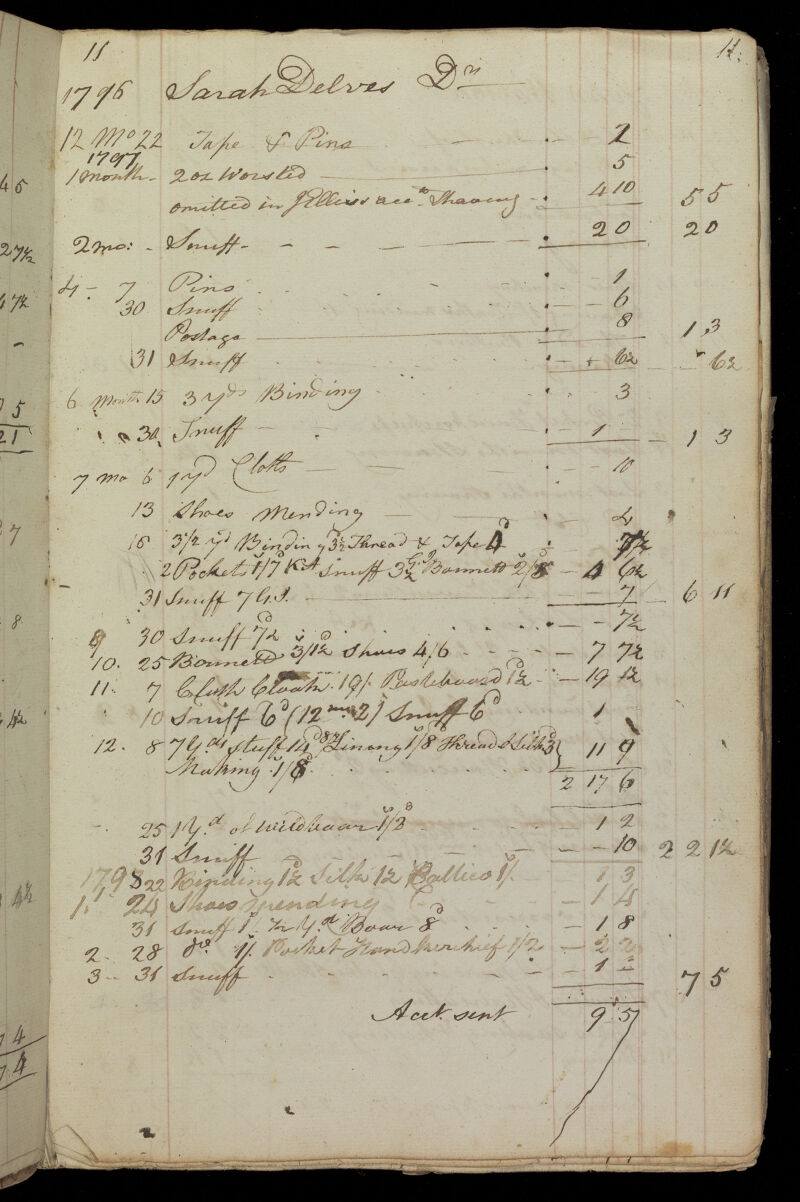 11 11.
1796 Sarah Delves Dr
12 Mo 22 Tape & Pins 2
1797
1 month 2 oz Worsted 5
omitted in J Ellis's acct Shaving 4 10 5 5
2 mo: Snuff 2 0 2 0
4 7 Pins 1
30 Snuff 6
Postage 8 1,3
31 Snuff 6½ 6½
6 month 15 3 yds Binding 3
30 Snuff 1 1 3
7 mo 6 1 yd Cloth 10
13 Shoes Mending
18 3½ yd Binding 3½ Thread & Tape 4d 7½
2 Pockets 1/7 Snuff 3½ Bonnett 2/8 4 6½
31 Snuff 7 7 6 11
8 30 Snuff 7½ 7½
10. 25 Bonnett 3/1½ Shoes 4/6 7 7½
11. 7 Cloth Cloak 19/. Pasteboard 1½ 19 1½
10 Snuff 6d (12 mo 2) Snuff 6d 1
12. 8 7 Yds Stuff Lining 1/8 Thread & Silk 3} 11 9
Making 1/8 2 17 6
25 1 Yd of 1/2 1 2
31 Snuff 10 2 2 1½
1798 22 Binding 1½ Silk 1½ Callico 1/. 1 3
1. 24 Shoes mending 1 4
31 Snuff 1/. Yd 8d 1 8
2 28 do 1/. Pocket Handkerchief 1/2 2 2
3 31 Snuff 1 7 5
Acct. sent 9 5